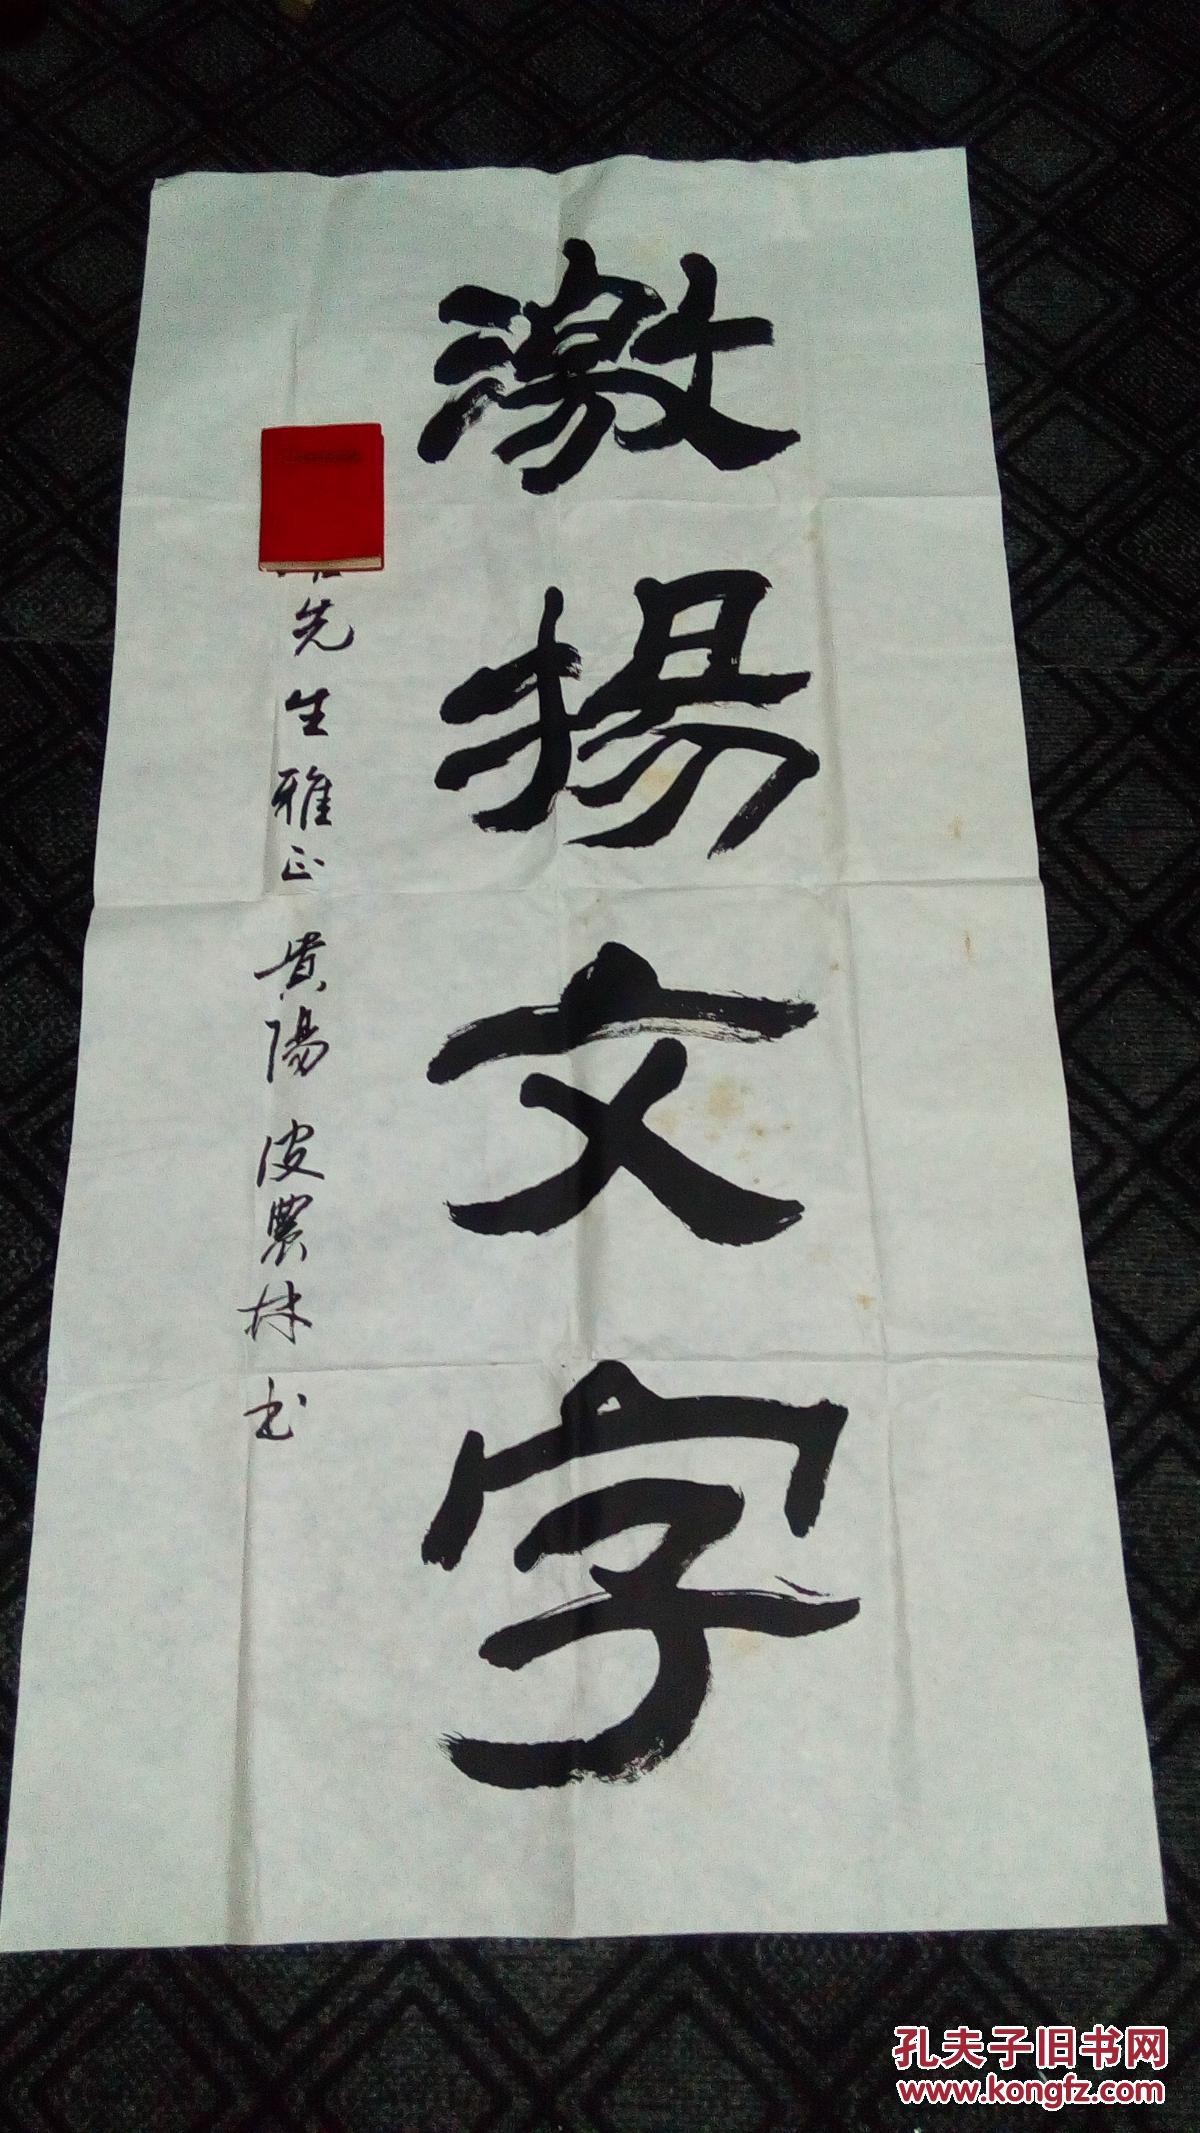 激揚文字
先生雅正 貴陽皮農林书
孔夫子旧书网
www.kongfz.com